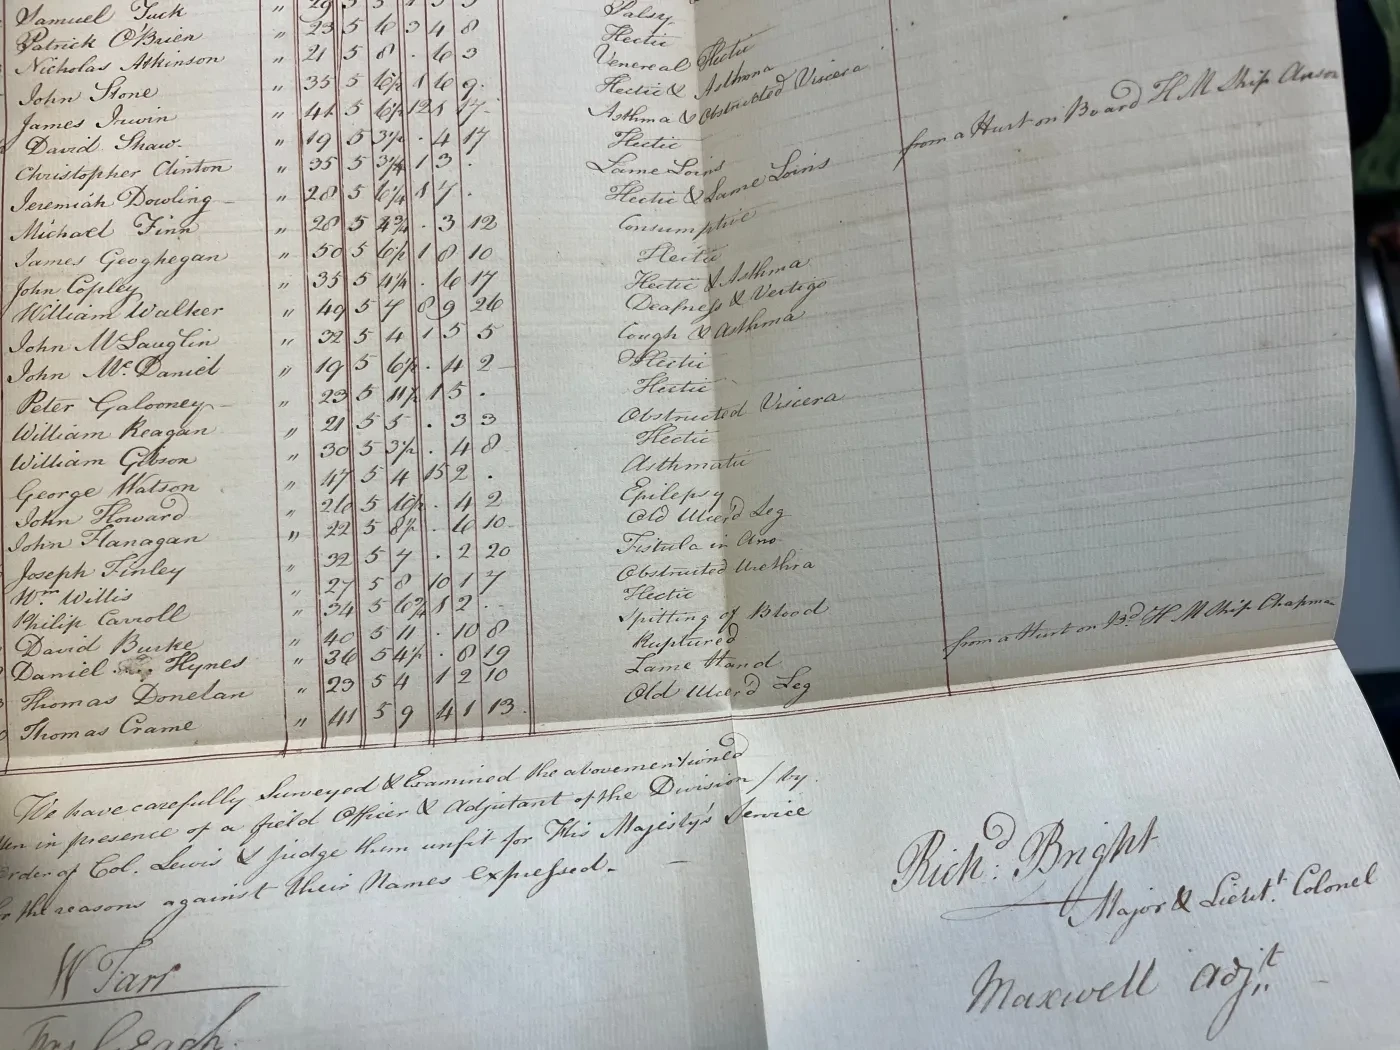 Samuel Tuck " 29 5 5 1 3 3 Palsy
Patrick O'Brien " 23 5 6 3 4 8 Hectic
Nicholas Atkinson " 21 5 8 . 6 3 Venereal Hectic
John Stone " 35 5 6½ 1 6 9 Hectic & Asthma
James Irwin " 41 5 6½ 12 1 17 Asthma & Obstructed Viscera
David Shaw " 19 5 3½ . 4 17 Hectic
Christopher Clinton " 35 5 3¼ 1 3 . Lame Loins from a Hurt on Board H M Ship Anson
Jeremiah Dowling " 28 5 6¼ 1 7 . Hectic & Lame Loins
Michael Finn " 28 5 4¾ . 3 12 Consumptive
James Geoghegan " 50 5 6½ 1 8 10 Hectic
John Copley " 35 5 4¼ . 6 17 Hectic & Asthma
William Walker " 49 5 7 8 9 26 Deafness & Vertigo
John McLauglin " 32 5 4 1 5 5 Cough & Asthma
John McDaniel " 19 5 6½ . 4 2 Hectic
Peter Galooney " 23 5 11½ 1 5 . Hectic
William Reagan " 21 5 5 . 3 3 Obstructed Viscera
William Gibson " 30 5 3½ . 4 8 Hectic
George Watson " 47 5 4 15 2 . Asthmatic
John Howard " 26 5 10½ . 4 2 Epilepsy
John Flanagan " 22 5 8½ . 6 10 Old Ulcer'd Leg
Joseph Finley " 32 5 7 . 2 20 Fistula in Ano
Wm. Willis " 27 5 8 10 1 7 Obstructed Urethra
Philip Carroll " 34 5 6¾ 1 2 . Hectic
David Burke " 40 5 11 . 10 8 Spitting of Blood
Daniel Hynes " 36 5 4½ . 8 19 Ruptured from a Hurt on Bd. H M Ship Chapman
Thomas Donelan " 23 5 4 1 2 10 Lame Hand
Thomas Crame " 41 5 9 4 1 13 Old Ulcer'd Leg
We have carefully Surveyed & Examined the abovementioned
Men in presence of a field Officer & Adjutant of the Division / by
Order of Col. Lewis & judge them unfit for His Majesty's Service
for the reasons against their Names expressed.
W Tarr
Leach.
Richd: Bright
Major & Lieutt. Colonel
Maxwell Adjt.